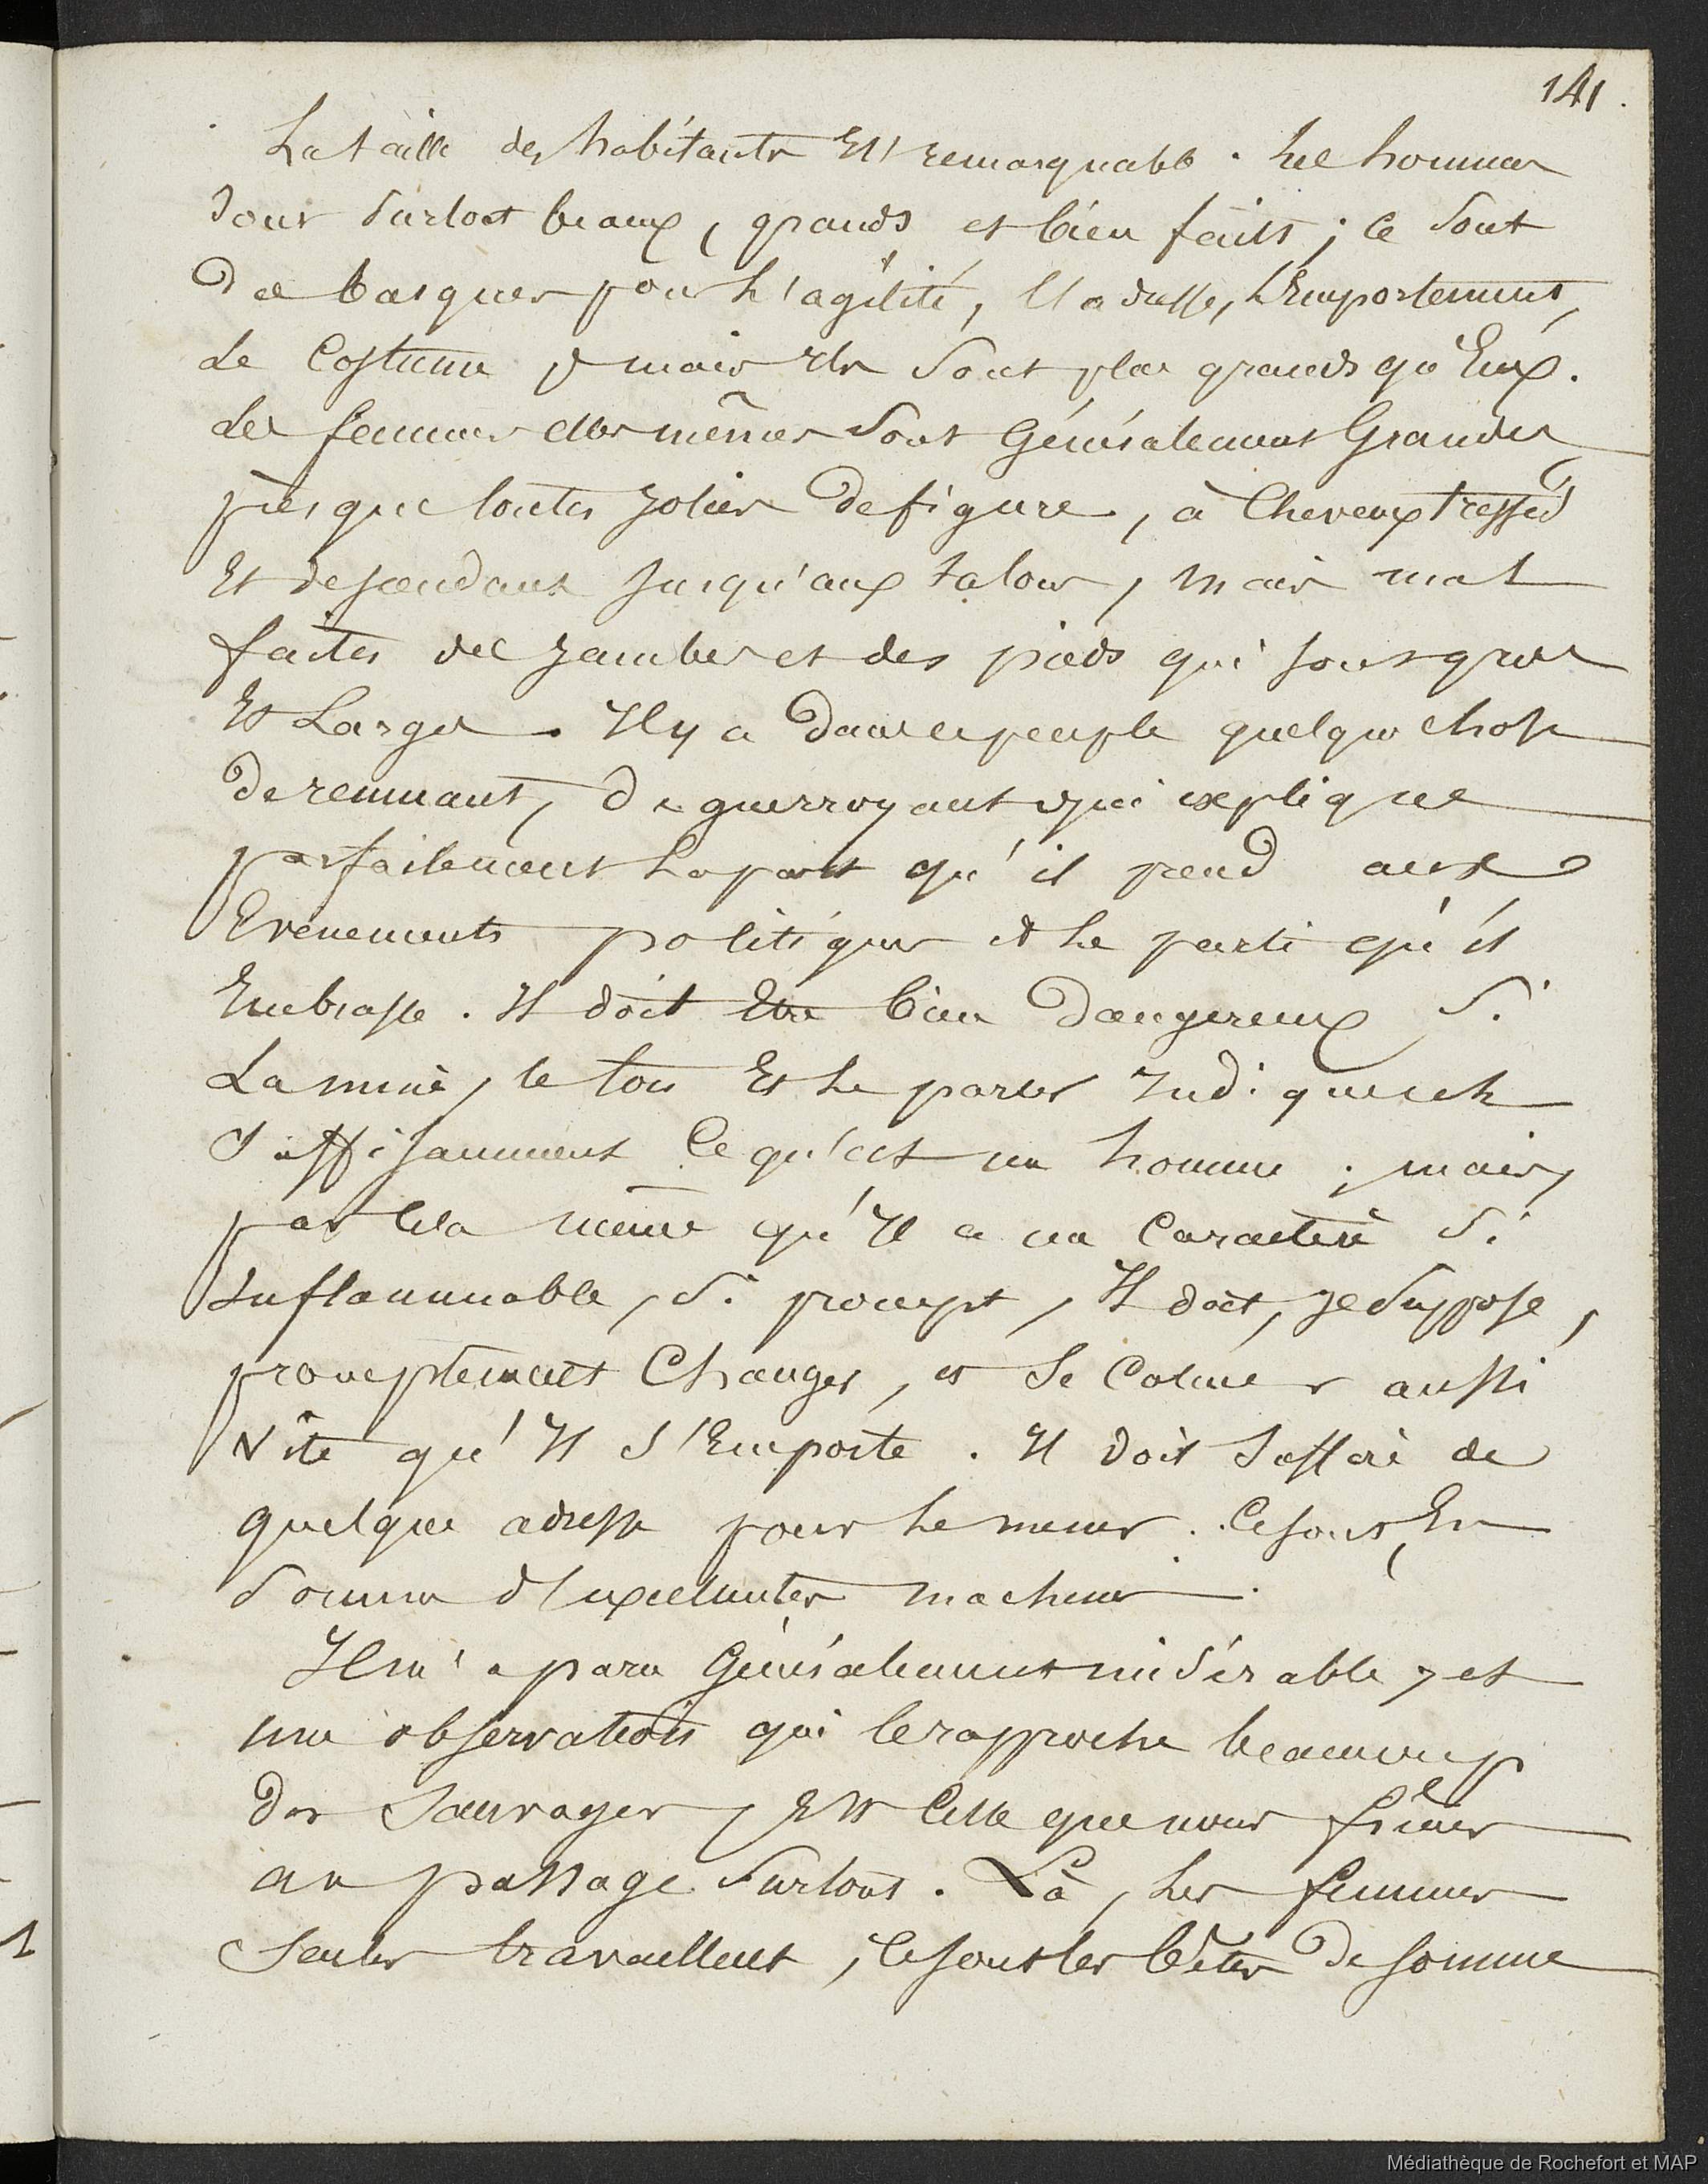 141.
La taille des habitants Est remarquable. Les hommes
sont surtout beaux, grands et bien faits ; ce sont
des basques pour l'agilité, l'adresse, l'Emportement,
le Costume ; mais Ils sont plus grands qu'Eux.
Les femmes elles mêmes sont Généralement Grandes,
presque toutes Jolies de figure, à Cheveux tressés
Et descendans Jusqu'aux talons, mais mal
faites des Jambes et des pieds qui sont gros
Et Larges. Il y a dans ce peuple quelque chose
de remuant, de guerroyant qui explique
parfaitement la part qu'il prend aux
Evénements politiques et le parti qu'il
Embrasse. Il doit Etre bien dangereux si
la mine, le ton Et le parler Indiquent
suffisamment Ce qu'est un homme ; mais,
par cela même qu'Il a un Caractère si
Inflammable, si prompt, Il doit, je suppose,
promptement Changer, et se Calmer aussi
vite qu'Il s'Emporte. Il doit suffire de
quelque adresse pour le mener. Ce sont, En
somme d'excellentes machines.
Il m'a paru Généralement misérable, et
une observation qui le rapproche beaucoup
des Sauvages, Est Celle que nous fîmes
au passage surtout. Là, les femmes
seules travaillent, ce sont les bêtes de somme
Médiathèque de Rochefort et MAP